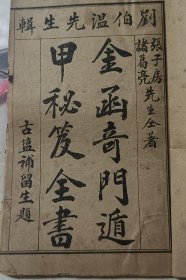 劉伯温先生輯
張子房
諸葛亮先生仝著
金函奇門遁
甲秘笈全書
古盐補留生題